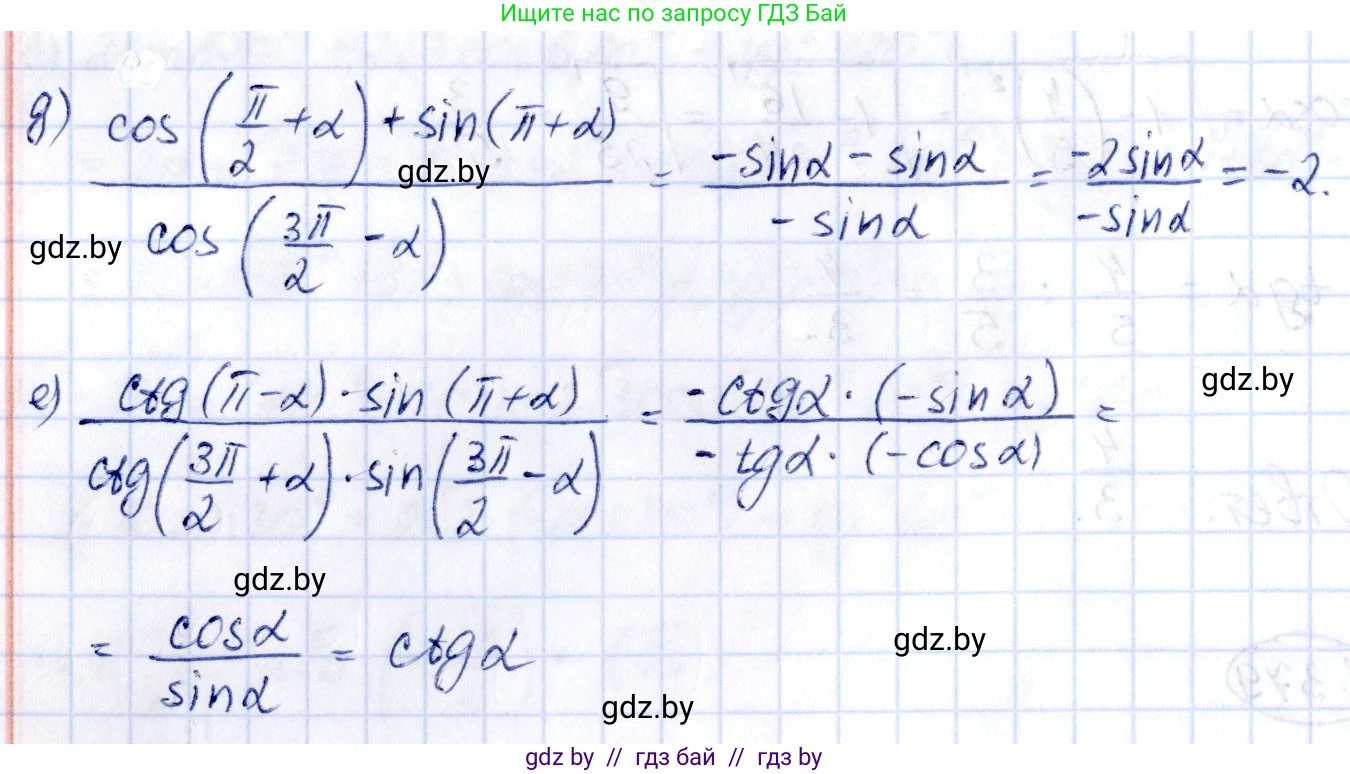 Ищите нас по запросу ГДЗ Бай
д) (cos(π/2 + α) + sin(π+α)) / cos(3π/2 - α) = (-sinα - sinα) / (-sinα) = (-2sinα) / (-sinα) = -2.
gdz.by
gdz.by
е) (ctg(π-α) · sin(π+α)) / (ctg(3π/2 + α) · sin(3π/2 - α)) = (-ctgα · (-sinα)) / (-tgα · (-cosα)) =
gdz.by
gdz.by
= cosα / sinα = ctgα
gdz.by
gdz.by
gdz by // гдз бай // гдз by